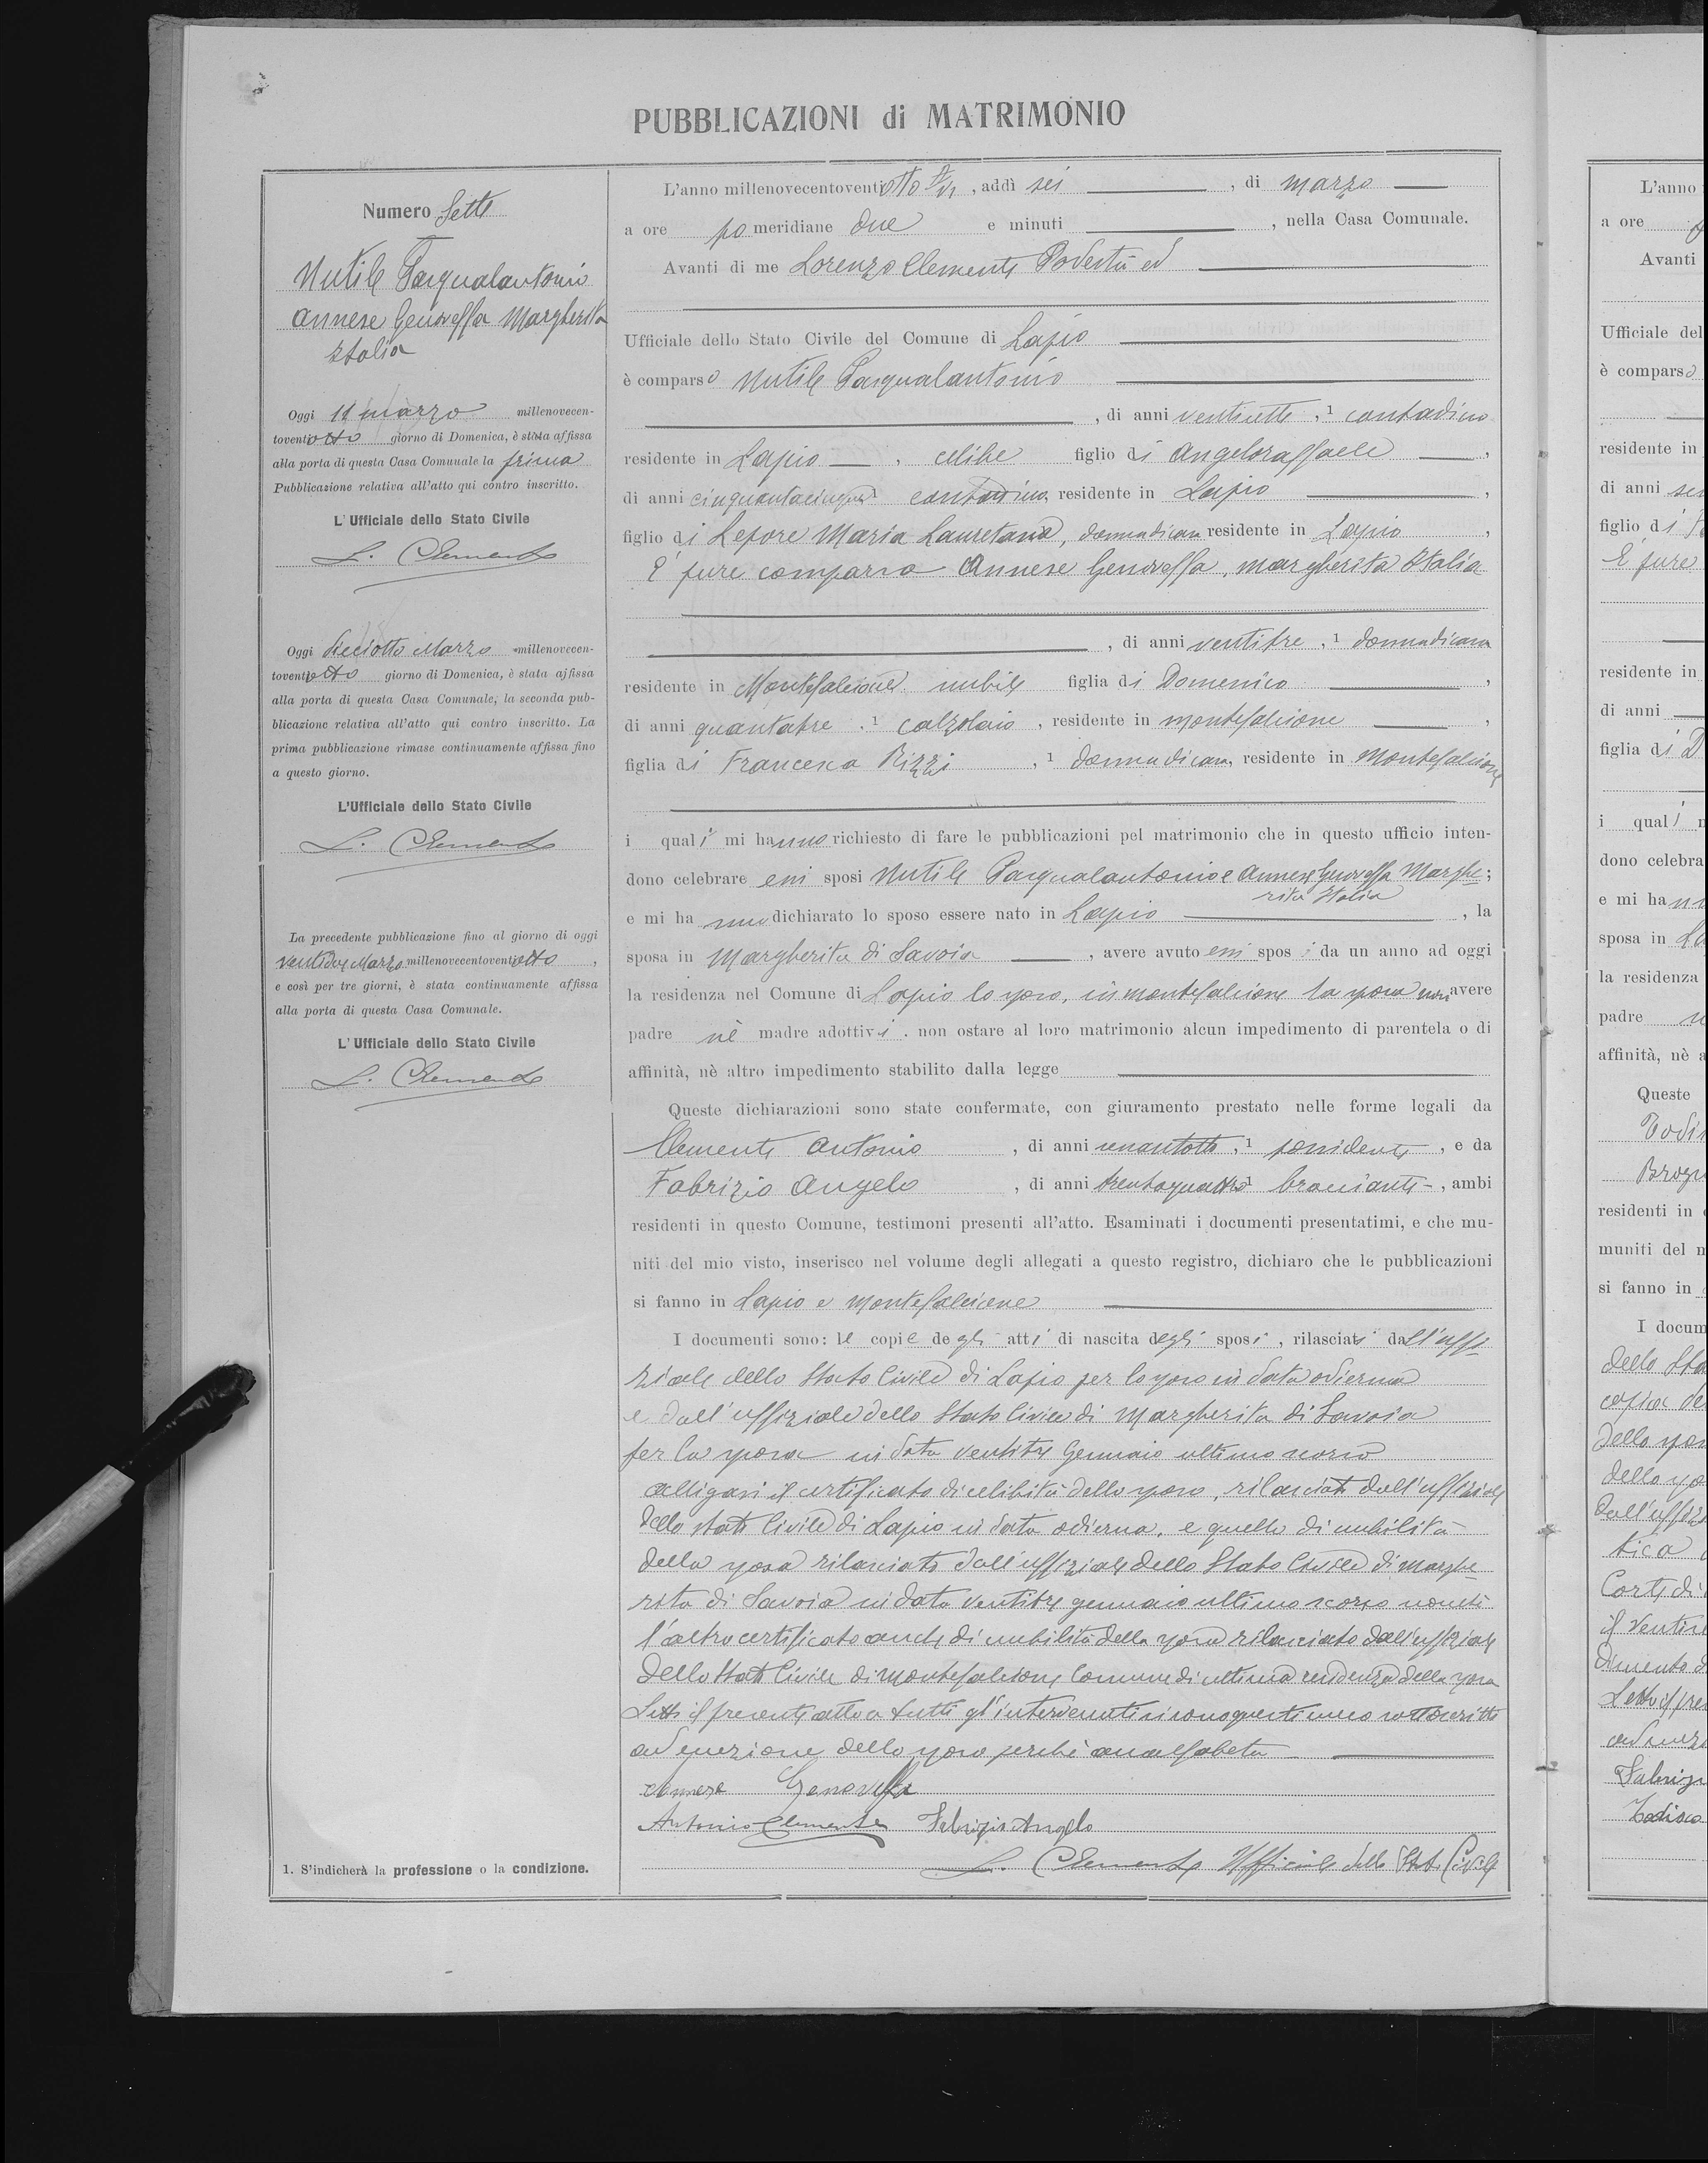 PUBBLICAZIONI di MATRIMONIO
Numero Sette
Nutile Pasqualantonio
Annese Genoveffa Margherita
Italia
Oggi 11 marzo millenovecen-
toventiotto giorno di Domenica, è stata affissa
alla porta di questa Casa Comunale la prima
Pubblicazione relativa all'atto qui contro inscritto.
L'Ufficiale dello Stato Civile
L. Clemente
Oggi diciotto Marzo millenovecen-
toventiotto giorno di Domenica, è stata affissa
alla porta di questa Casa Comunale, la seconda pub-
blicazione relativa all'atto qui contro inscritto. La
prima pubblicazione rimase continuamente affissa fino
a questo giorno.
L'Ufficiale dello Stato Civile
L. Clemente
La precedente pubblicazione fino al giorno di oggi
ventidue Marzo millenovecentoventiotto,
e così per tre giorni, è stata continuamente affissa
alla porta di questa Casa Comunale.
L'Ufficiale dello Stato Civile
L. Clemente
1. S'indicherà la professione o la condizione.
L'anno millenovecentoventiotto A VI, addì sei, di marzo
a ore pomeridiane due e minuti, nella Casa Comunale.
Avanti di me Lorenzo Clemente Podestà ed
Ufficiale dello Stato Civile del Comune di Lapio
è comparso Nutile Pasqualantonio
, di anni ventisette, 1 contadino
residente in Lapio, celibe figlio di Angeloraffaele,
di anni cinquantacinque 1 contadino, residente in Lapio,
figlio di Lepore Maria Lauretana, donnadicasa residente in Lapio,
È pure comparsa Annese Genoveffa, Margherita Italia
, di anni ventitre, 1 donnadicasa
residente in Montefalcione nubile figlia di Domenico,
di anni quantatre, 1 calzolaio, residente in Montefalcione,
figlia di Francesca Rizzi, 1 donnadicasa, residente in Montefalcione
i quali mi hanno richiesto di fare le pubblicazioni pel matrimonio che in questo ufficio inten-
dono celebrare essi sposi Nutile Pasqualantonio e Annese Genoveffa Marghe;
rita Italia
e mi hanno dichiarato lo sposo essere nato in Lapio, la
sposa in Margherita di Savoia, avere avuto essi sposi da un anno ad oggi
la residenza nel Comune di Lapio lo sposo, in Montefalcione la sposa non avere
padre nè madre adottivi. non ostare al loro matrimonio alcun impedimento di parentela o di
affinità, nè altro impedimento stabilito dalla legge
Queste dichiarazioni sono state confermate, con giuramento prestato nelle forme legali da
Clemente Antonio, di anni 1 possidente, e da
Fabrizio Angelo, di anni trentaquattro 1 bracciante, ambi
residenti in questo Comune, testimoni presenti all'atto. Esaminati i documenti presentatimi, e che mu-
niti del mio visto, inserisco nel volume degli allegati a questo registro, dichiaro che le pubblicazioni
si fanno in Lapio e Montefalcione
I documenti sono: le copie degli atti di nascita degli sposi, rilasciati dall'uffi
ziale dello Stato Civile di Lapio per lo sposo in data odierna
e dall'uffiziale dello Stato Civile di Margherita di Savoia
per la sposa in data ventitre Gennaio ultimo scorso
alligasi il certificato di celibità dello sposo, rilasciato dall'uffiziale
dello Stato Civile di Lapio in data odierna, e quello di nubilità
della sposa rilasciato dall'uffiziale dello Stato Civile di Marghe
rita di Savoia in data ventitre gennaio ultimo scorso nonchè
l'altro certificato anche di nubilità della sposa rilasciato dall'uffiziale
dello Stato Civile di Montefalcione Comune di ultima residenza della sposa
Letto il presente atto a tutti gl'intervenuti si sono questi meco sottoscritti
ad eccezione dello sposo perchè analfabeta
Annese Genoveffa
Antonio Clemente Fabrizio Angelo
L. Clemente Ufficiale dello Stato Civile
L'anno
a ore
Avanti
Ufficiale del
è comparso
residente in
di anni
figlio di
È pure
residente in
di anni
figlia di D
i quali
dono celebra
e mi ha
sposa in
la residenza
padre
affinità, nè a
Queste
residenti in
muniti del
si fanno in
I docum
dello Sta
copia de
dello
tica
Corte di
il venti